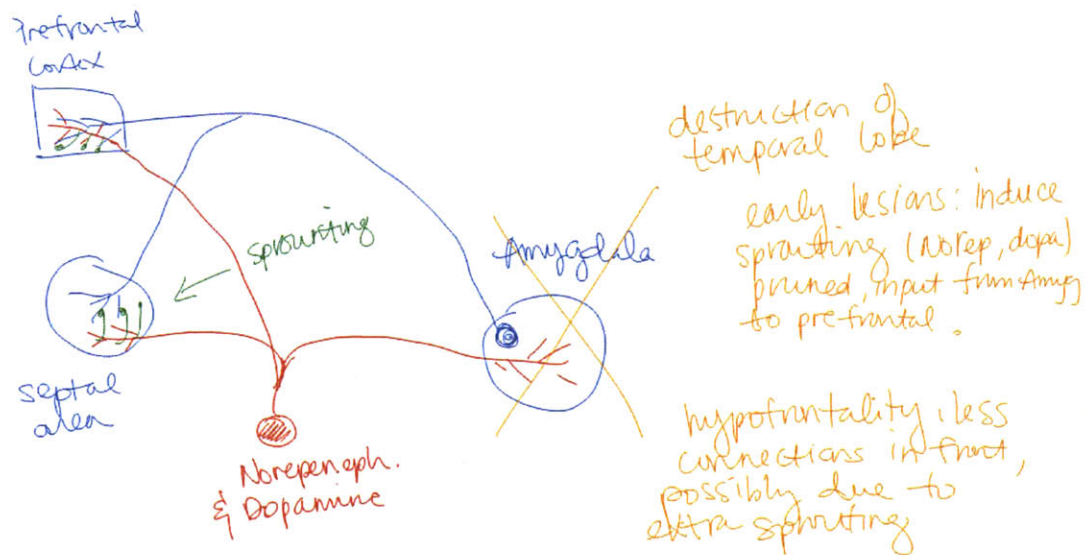 Prefrontal
Cortex
sprouting
Amygdala
septal
area
Norepeneph.
& Dopamine
destruction of
temporal lobe
early lesions: induce
sprouting (Norep, dopa)
pruned, input from Amyg
to prefrontal.
hypofrontality, less
connections in front,
possibly due to
extra sprouting